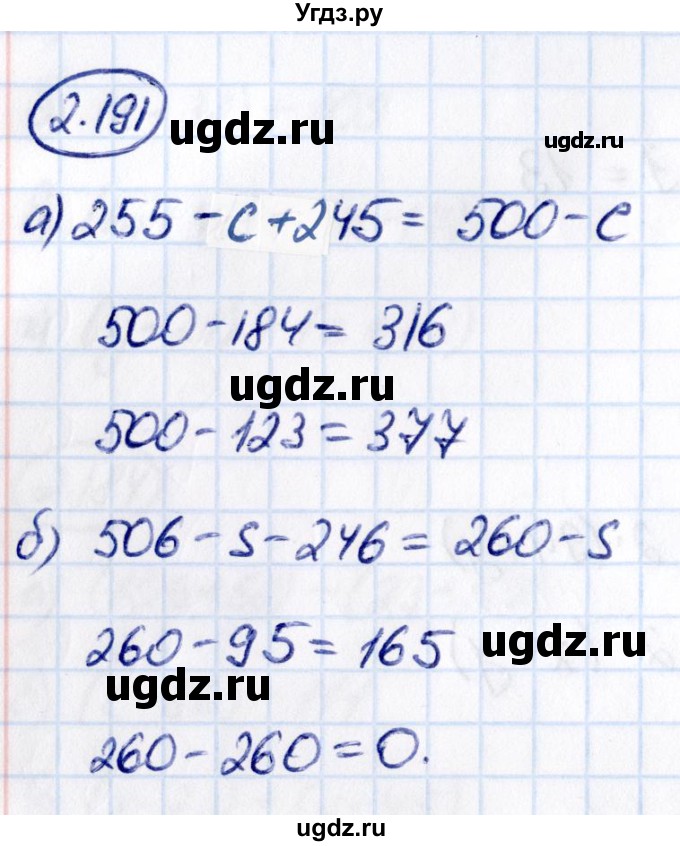 Угдз.ру
2.191
ugdz.ru
ugdz.ru
а) 255 - c + 245 = 500 - c
500 - 184 = 316
ugdz.ru
500 - 123 = 377
б) 506 - s - 246 = 260 - s
260 - 95 = 165
ugdz.ru
ugdz.ru
260 - 260 = 0.
ugdz.ru